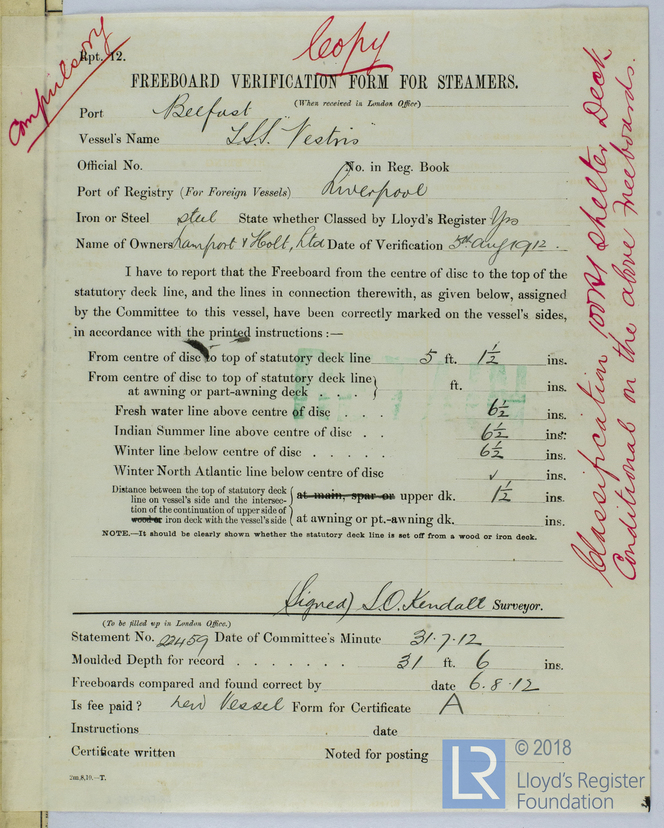 Rpt. 12.
Copy
Compulsory
FREEBOARD VERIFICATION FORM FOR STEAMERS.
(When received in London Office)
Port Belfast
Vessel's Name T.S.S. "Vestris"
Official No. No. in Reg. Book
Port of Registry (For Foreign Vessels) Liverpool
Iron or Steel steel State whether Classed by Lloyd's Register Yes
Name of Owners Lamport & Holt, Ltd Date of Verification 5th Aug 1912.
I have to report that the Freeboard from the centre of disc to the top of the
statutory deck line, and the lines in connection therewith, as given below, assigned
by the Committee to this vessel, have been correctly marked on the vessel's sides,
in accordance with the printed instructions :—
From centre of disc to top of statutory deck line 5 ft. 1½ ins.
From centre of disc to top of statutory deck line
at awning or part-awning deck . . . . ft. ins.
Fresh water line above centre of disc . . . . 6½ ins.
Indian Summer line above centre of disc . . 6½ ins.
Winter line below centre of disc . . . . . 6½ ins.
Winter North Atlantic line below centre of disc ✓ ins.
Distance between the top of statutory deck
line on vessel's side and the intersec-
tion of the continuation of upper side of
wood or iron deck with the vessel's side
at main, spar or upper dk. 1½ ins.
at awning or pt.-awning dk. ins.
NOTE.—It should be clearly shown whether the statutory deck line is set off from a wood or iron deck.
(Signed) S.O. Kendall Surveyor.
(To be filled up in London Office.)
Statement No. 22459 Date of Committee's Minute 31.7.12
Moulded Depth for record . . . . . . . 31 ft. 6 ins.
Freeboards compared and found correct by date 6.8.12
Is fee paid? New Vessel Form for Certificate A
Instructions date
Certificate written Noted for posting
2m,8,10.—T.
Classification 100A1 Shelter Deck
Conditional on the above Freeboards.
© 2018
LR
Lloyd's Register
Foundation